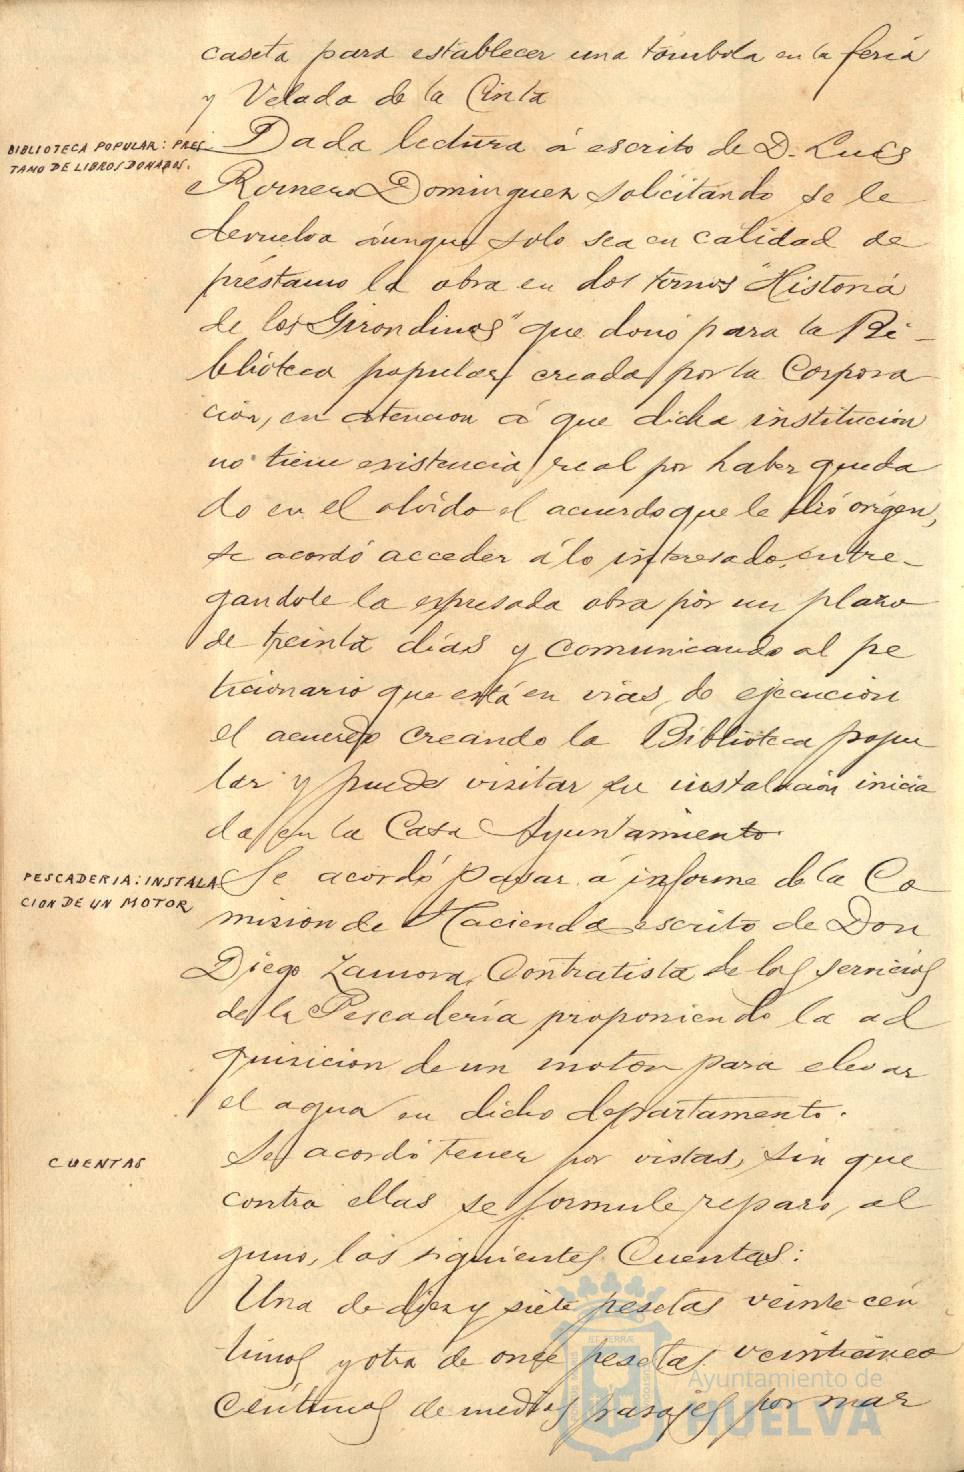 caseta para establecer una tómbola en la feria
y Velada de la Cinta
BIBLIOTECA POPULAR: PRES
TAMO DE LIBROS DONADOS.
Dada lectura á escrito de D. Luis
Romero Dominguez solicitando se le
devuelva aunque solo sea en calidad de
préstamo la obra en dos tomos "Historia
de los Girondinos" que donó para la Bi-
blioteca popular creada por la Corpora
ción, en atencion á que dicha institución
no tiene existencia real por haber queda
do en el olvido el acuerdo que le dió orígen,
se acordó acceder á lo interesado, entre-
gandole la expresada obra por un plazo
de treinta días y comunicando al pe
ticionario que está en vias de ejecución
el acuerdo creando la Biblioteca popu
lar y puede visitar su instalación inicia
da en la Casa Ayuntamiento.
PESCADERIA: INSTALA
CION DE UN MOTOR
Se acordó pasar á informe de la Co
mision de Hacienda escrito de Don
Diego Zamora, Contratista de los servicios
de la Pescadería proponiendo la ad
quisicion de un motor para elevar
el agua en dicho departamento.
CUENTAS
Se acordó tener por vistas, sin que
contra ellas se formule reparo al
guno, las siguientes Cuentas:
Una de diez y siete pesetas veinte cén
timos y otra de once pesetas veinticinco
céntimos de medios pasajes por mar
Ayuntamiento de
HUELVA